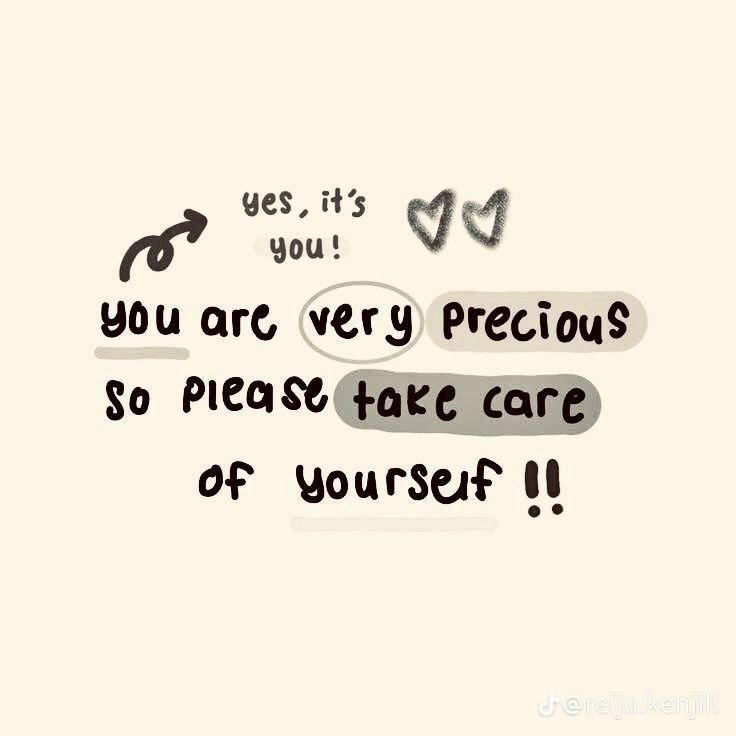 yes, it's
you!
you are very precious
so please take care
of yourself !!
@reiju.kenjill